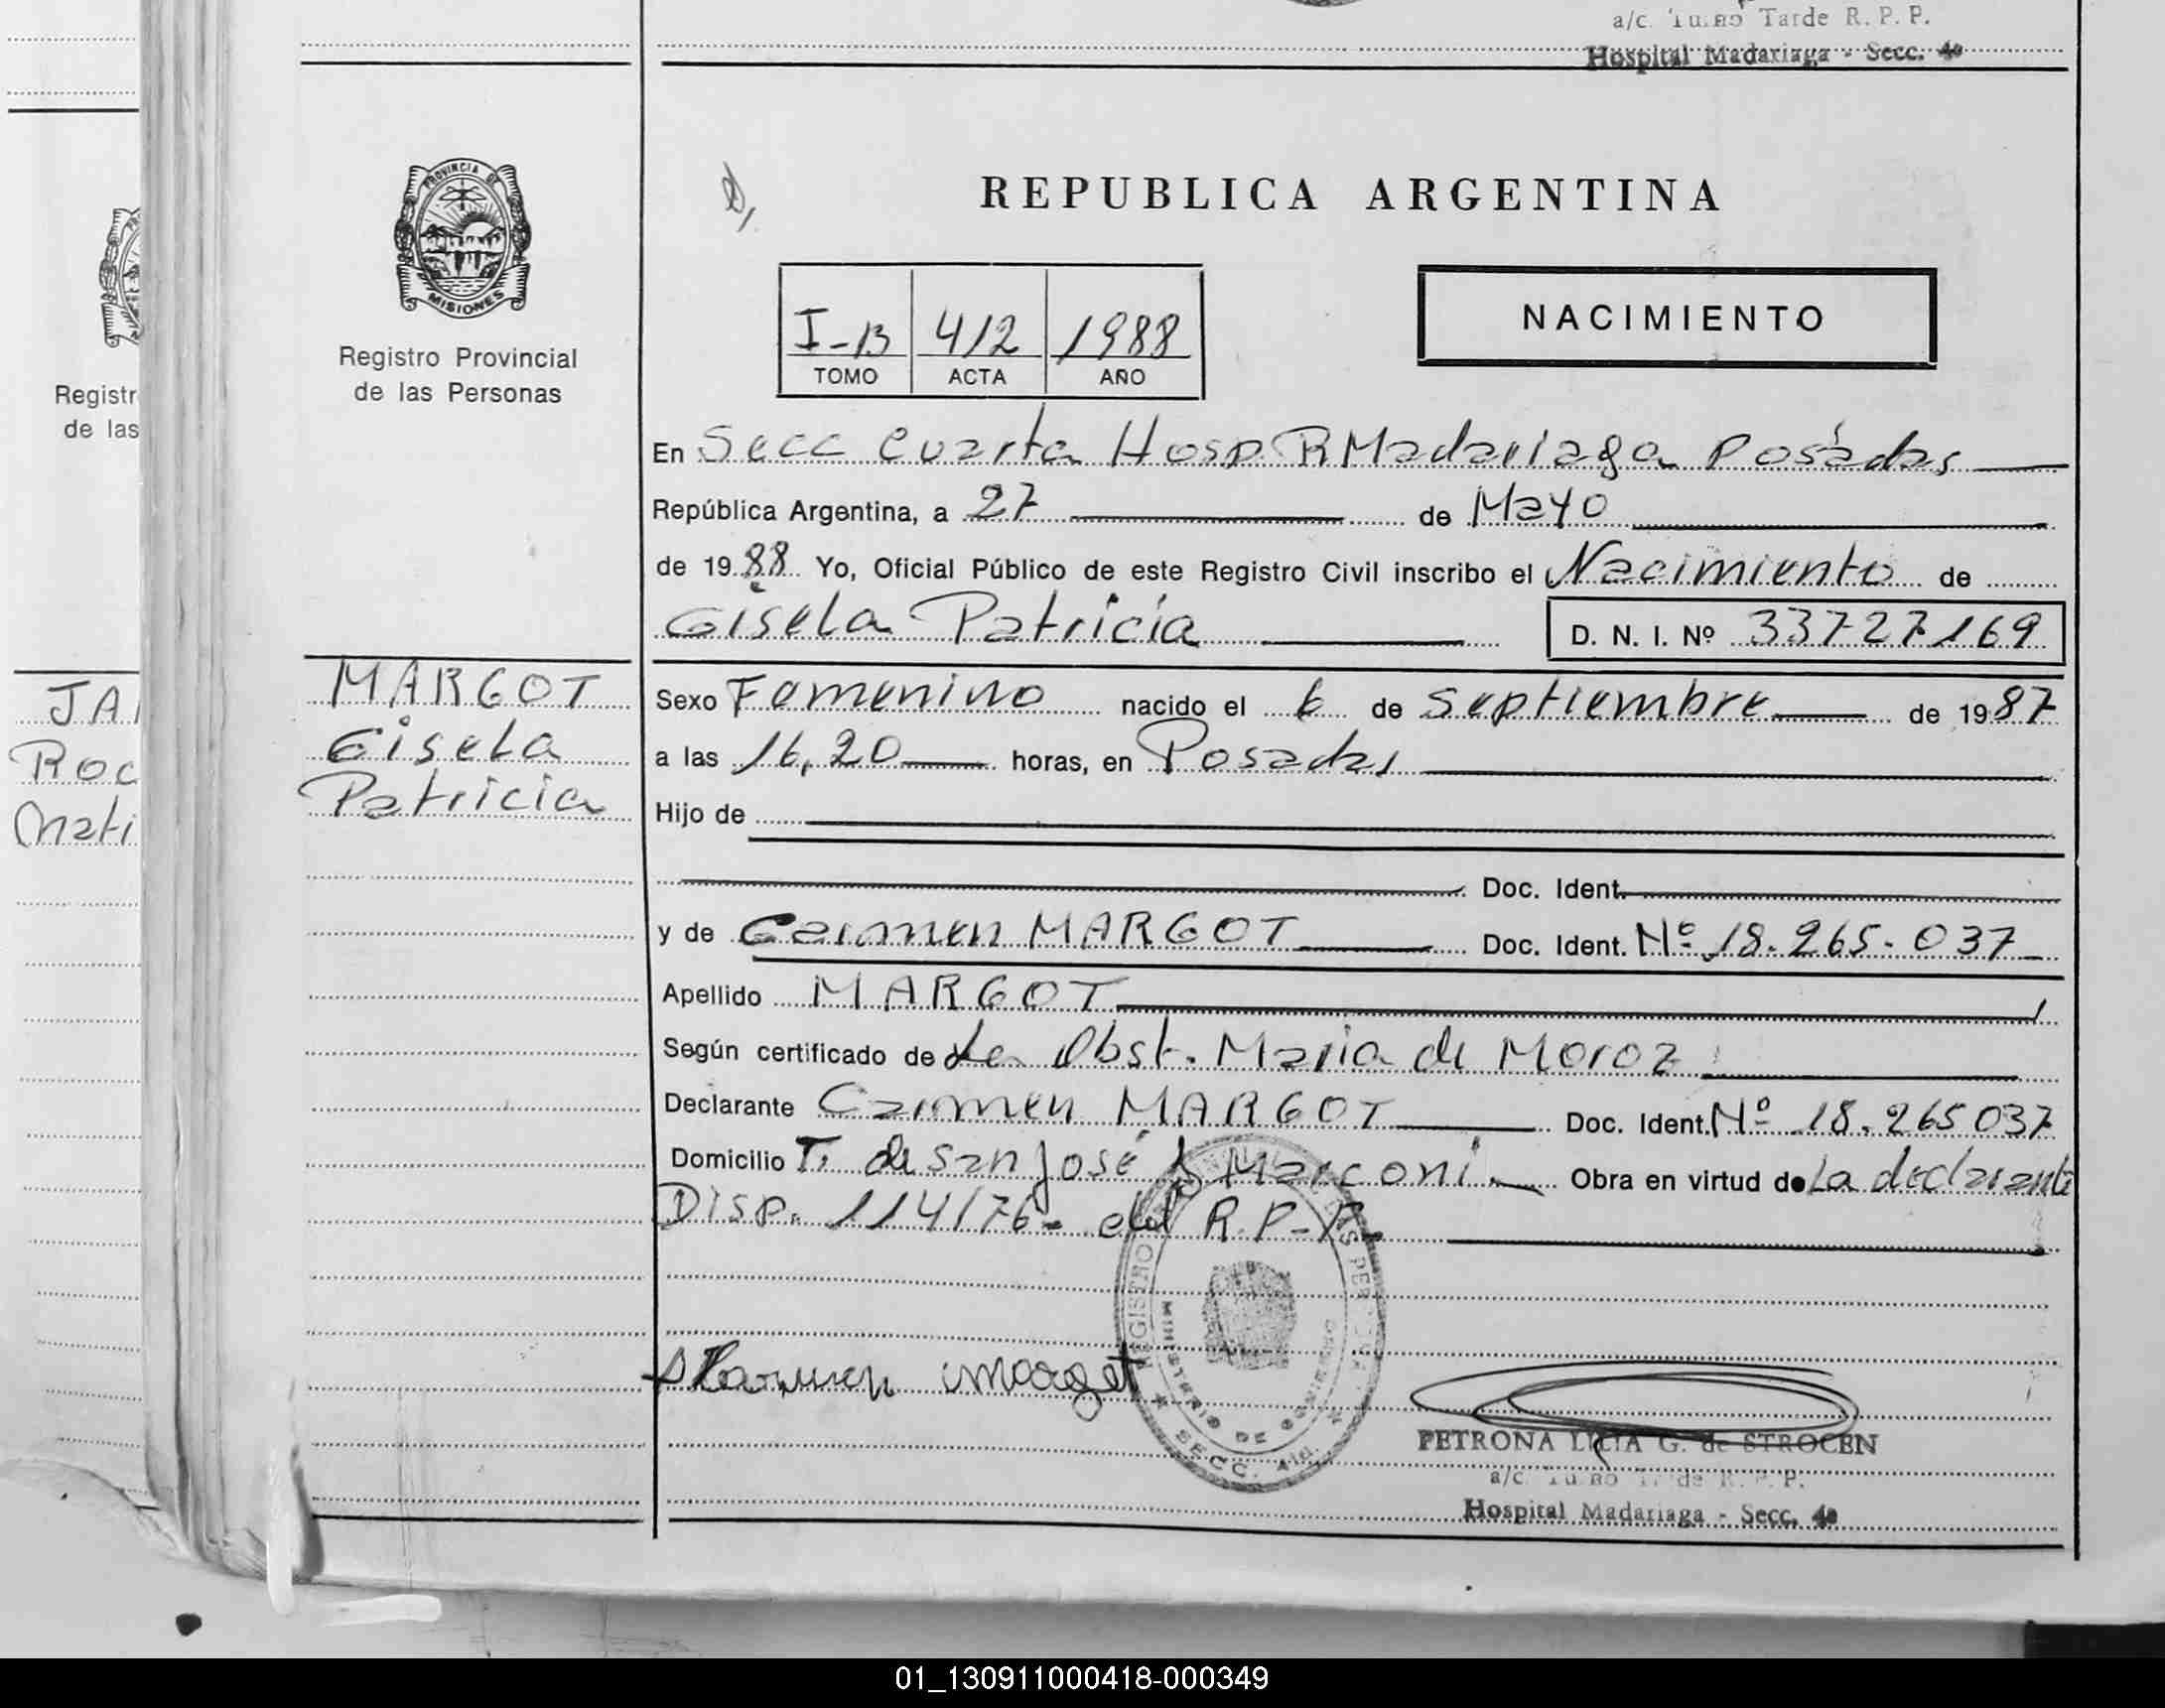 a/c. Turno Tarde R. P. P.
Hospital Madariaga - Secc. 4a
PROVINCIA DE
MISIONES
Registro Provincial
de las Personas
Registr
de las
REPUBLICA ARGENTINA
I-13 412 1988
TOMO ACTA AÑO
NACIMIENTO
En Secc Cuarta Hosp. R Madariaga Posadas
República Argentina, a 27 de Mayo
de 1988 Yo, Oficial Público de este Registro Civil inscribo el Nacimiento de
Gisela Patricia D. N. I. Nº 33727169
JA
Roc
Mati
MARGOT
Gisela
Patricia
Sexo Femenino nacido el 6 de Septiembre de 1987
a las 16,20 horas, en Posadas
Hijo de
Doc. Ident.
y de Carmen MARGOT Doc. Ident. Nº 18.265.037
Apellido MARGOT
Según certificado de La Obst. Maria de Moroz
Declarante Carmen MARGOT Doc. Ident. Nº 18.265037
Domicilio T. de San José y Marconi Obra en virtud de La declarante
Disp. 114/76- del R.P-P.
MINISTERIO DE GOBIERNO
SECC. 4ta
Karmen margot
PETRONA LICIA G. de STROCEN
a/c Turno Tarde R. P. P.
Hospital Madariaga - Secc. 4a
01_130911000418-000349